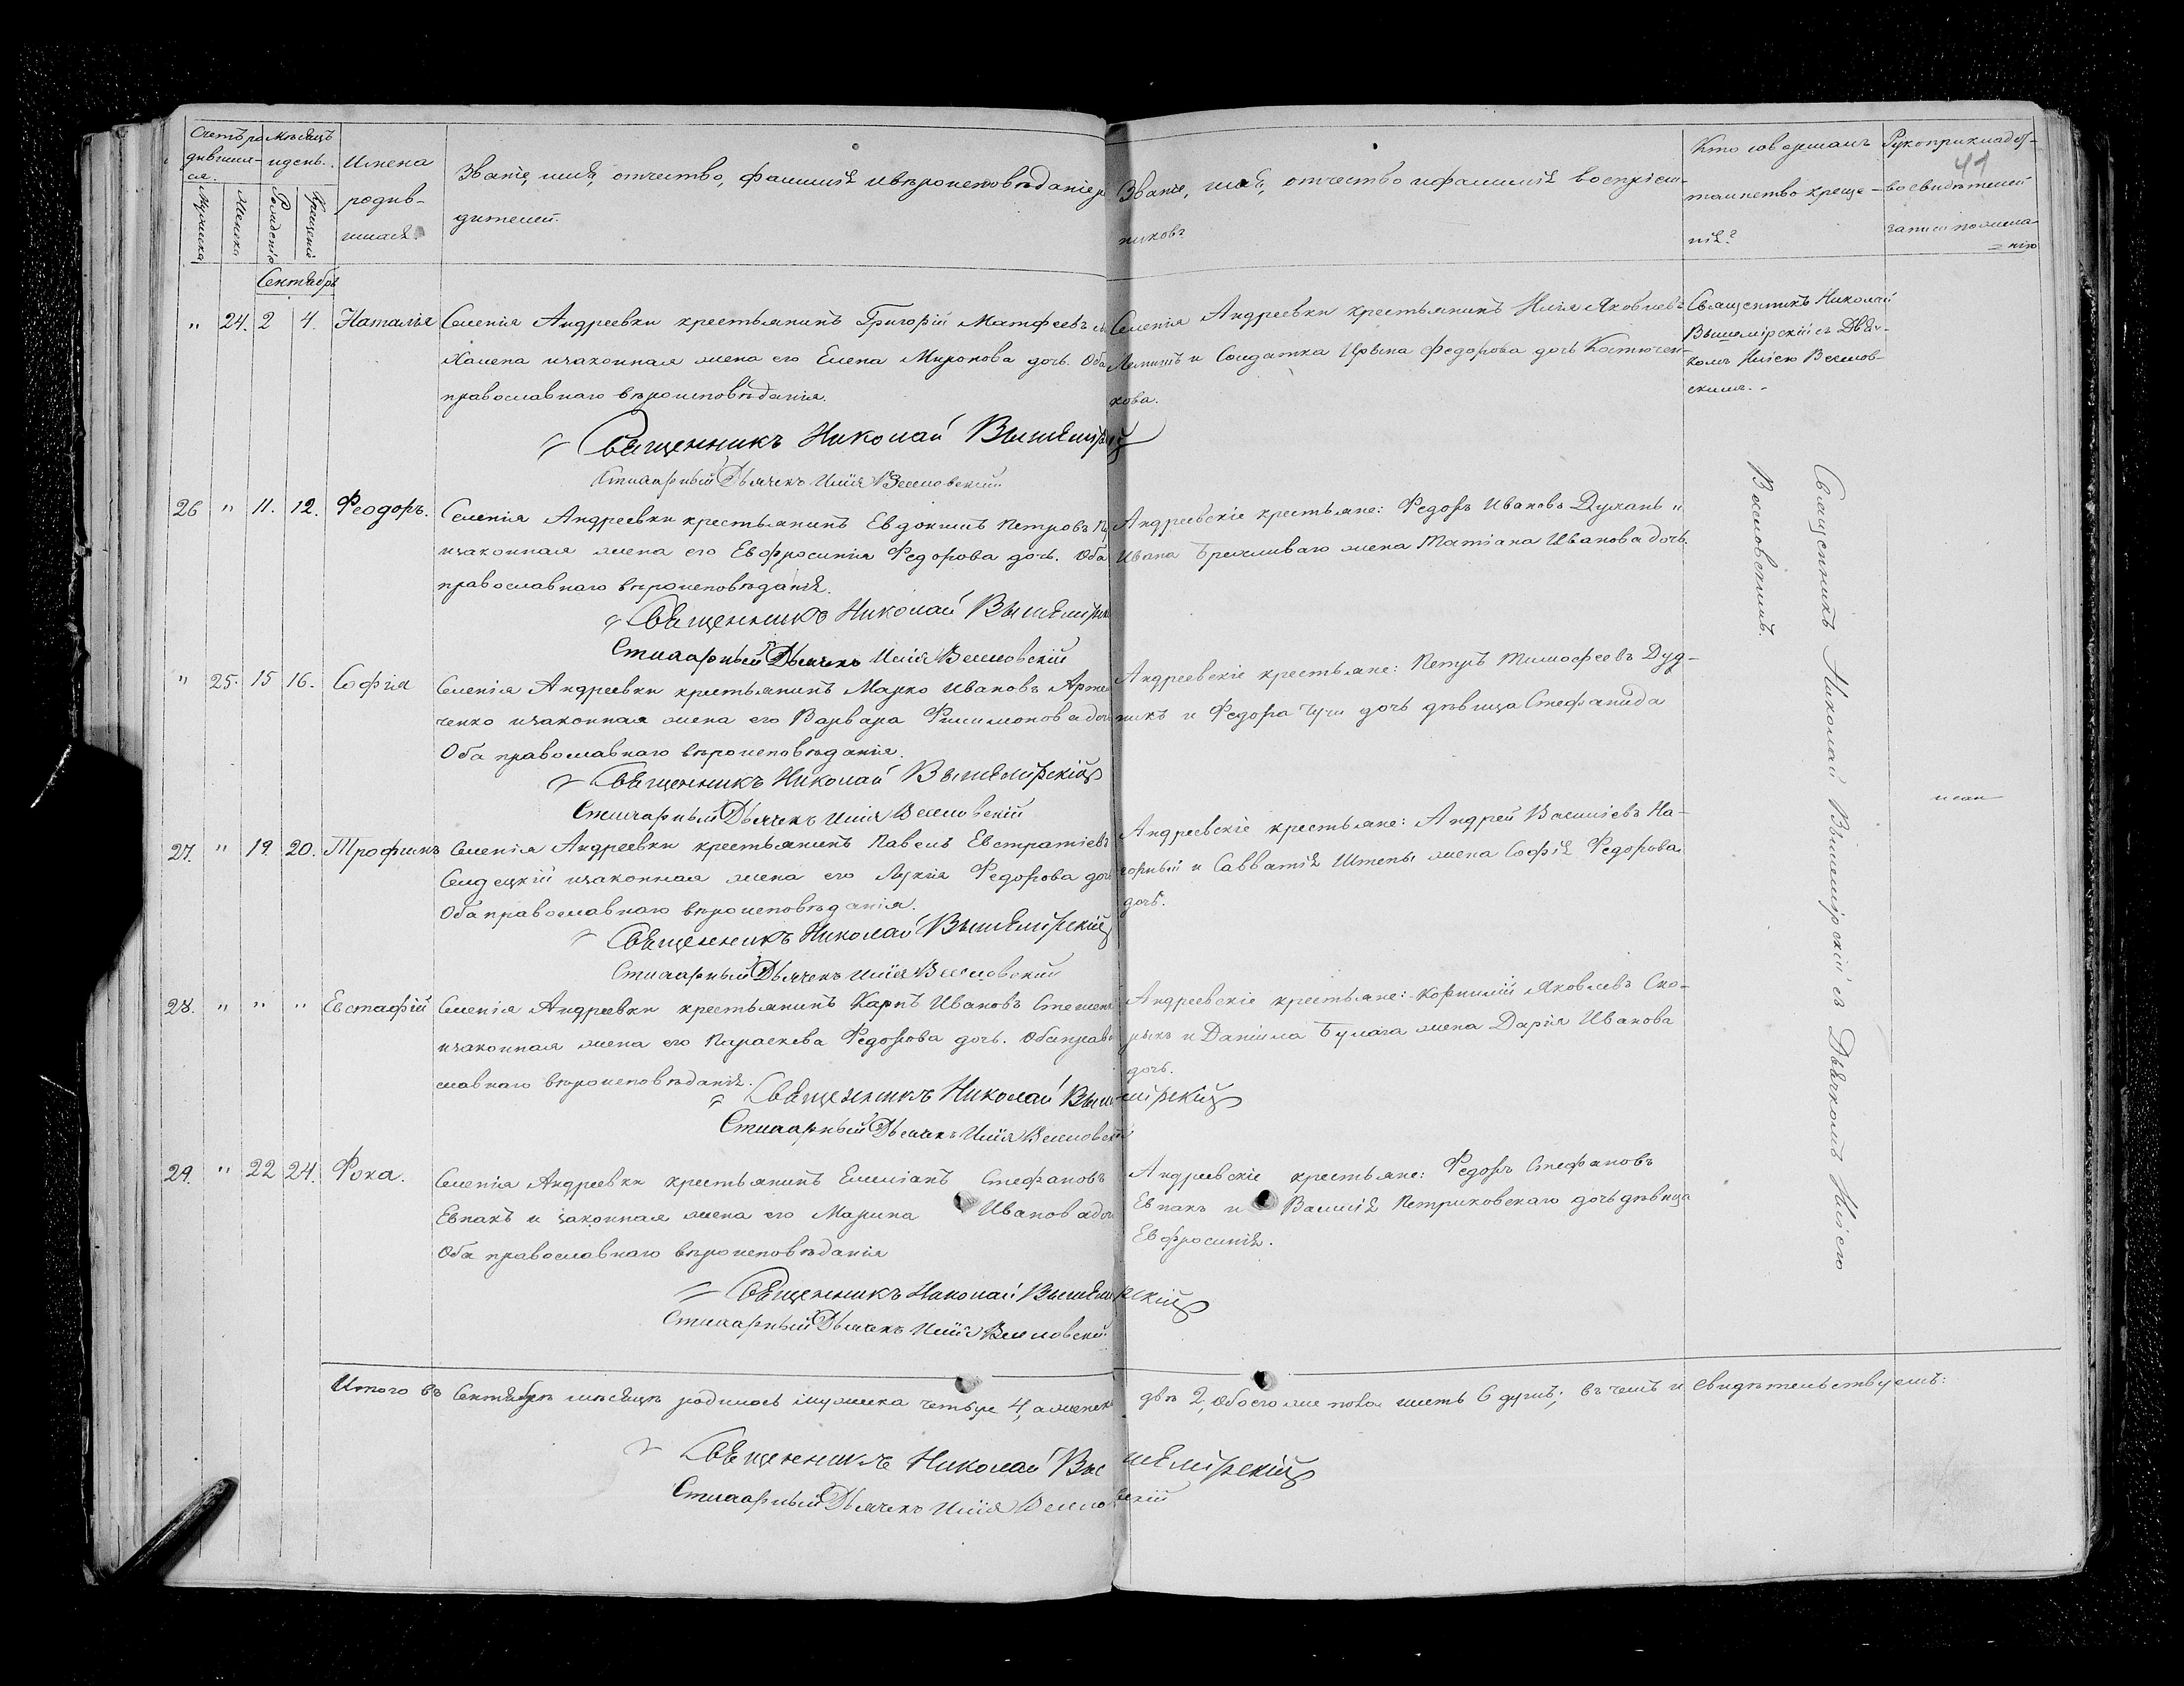 Счетъ ро-
дивших-
ся.
Мѣсяцъ
и день.
Мужеска
Женска
Рожденія
Крещенія
Имена
родив-
шихся.
Званіе, имя, отчество, фамилія и вѣроисповѣданіе ро
дителей.
Званіе, имя, отчество и фамилія воспріем-
никовъ
Кто совершалъ
таинство креще-
нія?
Рукоприкладст-
во свидѣтелей
записи по жела-
нію
41
Сентябрь
" 24. 2 4. Наталья
Селенія Андреевки крестьянинъ Григорій Матфеевъ
Халепа и законная жена его Елена Миронова дочь. Оба
православнаго вѣроисповѣданія.
Селенія Андреевки крестьянинъ Илія Яковлевъ
и Солдатка Ирина Федорова дочь Костючен-
кова.
Священникъ Николай
Вышемірскій съ Дьяч-
комъ Иліею Веселов-
скимъ.
Священникъ Николай Вышемірскій
Стихарный Дьячекъ Илія Веселовскій
26 " 11. 12. Феодоръ.
Селенія Андреевки крестьянинъ Евдокимъ Петровъ
и законная жена его Евфросинія Федорова дочь. Оба
православнаго вѣроисповѣданія.
Андреевскіе крестьяне: Федоръ Ивановъ Духанъ и
Ивана жена Татіана Иванова дочь.
Священникъ Николай Вышемірскій съ Дьячкомъ Иліею
Веселовскимъ.
Священникъ Николай Вышемір
Стихарный Дьячекъ Илія Веселовскій
" 25. 15 16. Софія
Селенія Андреевки крестьянинъ Марко Ивановъ Арте
ченко и законная жена его Варвара Филимонова дочь
Оба православнаго вѣроисповѣданія.
Андреевскіе крестьяне: Петръ Тимофеевъ Дуд-
никъ и Федора дочь дѣвица Стефанида
Священникъ Николай Вышемірскій
Стихарный Дьячекъ Илія Веселовскій
27. " 19. 20. Трофимъ
Селенія Андреевки крестьянинъ Павелъ Евстратіевъ
Селецкій и законная жена его Лукія Федорова дочь
Оба православнаго вѣроисповѣданія.
Андреевскіе крестьяне: Андрей Василіевъ На-
горный и Савватія Штепы жена Софія Федорова
дочь.
Священникъ Николай Вышемірскій
Стихарный Дьячекъ Илія Веселовскій
28. " " " Евстафій
Селенія Андреевки крестьянинъ Карпъ Ивановъ
и законная жена его Параскева Федорова дочь. Оба право
славнаго вѣроисповѣданія.
Андреевскіе крестьяне: Корнилій Яковлевъ Ско-
рыкъ и Даніила Булага жена Дарія Иванова
дочь.
Священникъ Николай Вышемірскій
Стихарный Дьячекъ Илія Веселовскій
29. " 22 24. Фока.
Селенія Андреевки крестьянинъ Емеліанъ Стефановъ
Евпакъ и законная жена его Марина Иванова дочь
Оба православнаго вѣроисповѣданія
Андреевскіе крестьяне: Федоръ Стефановъ
Евпакъ и Василія Петриковскаго дочь дѣвица
Евфросинія.
Священникъ Николай Вышемірскій
Стихарный Дьячекъ Илія Веселовскій
Итого въ Сентябрѣ мѣсяцѣ родилось мужеска четыре 4, а женска двѣ 2, обоего же пола шесть 6 душъ; въ чемъ и свидѣтельствуемъ:
Священникъ Николай Вышемірскій
Стихарный Дьячекъ Илія Веселовскій